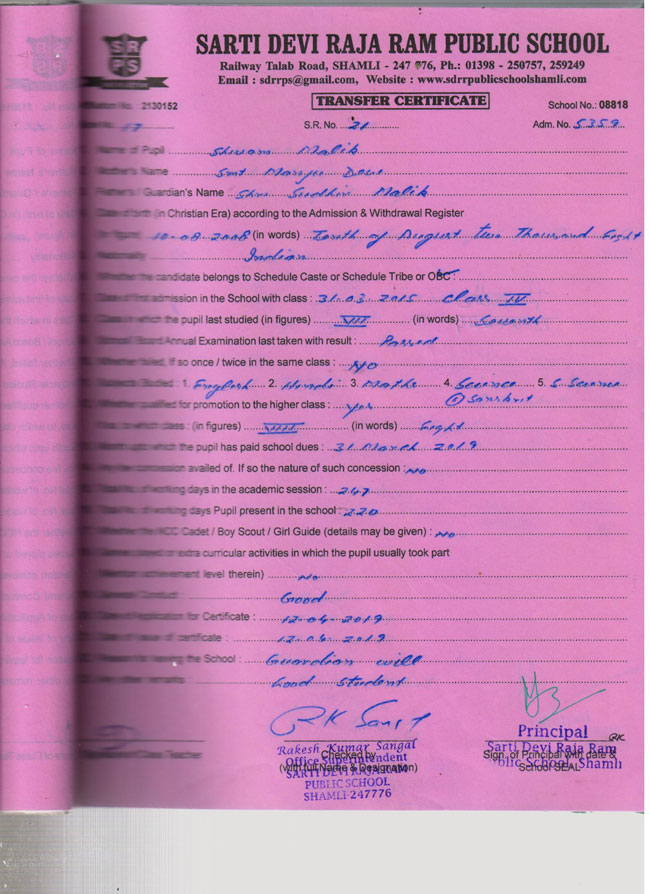 SRPS
SARTI DEVI RAJA RAM PUBLIC SCHOOL
Railway Talab Road, SHAMLI - 247 776, Ph.: 01398 - 250757, 259249
Email : sdrrps@gmail.com, Website : www.sdrrpublicschoolshamli.com
TRANSFER CERTIFICATE
No. 2130152 School No.: 08818
17 S.R. No. 21 Adm. No. 5359
Name of Pupil Shivam Malik
Mother's Name Smt Manju Devi
Father's / Guardian's Name Shri Sudhir Malik
Date of birth (in Christian Era) according to the Admission & Withdrawal Register
(in figure) 10-08-2008 (in words) Tenth of August two Thousand Eight
Nationality Indian
Whether the candidate belongs to Schedule Caste or Schedule Tribe or OBC :
Date of first admission in the School with class : 31.03.2015 Class IV
Class in which the pupil last studied (in figures) VII (in words) Seventh
School / Board Annual Examination last taken with result : Passed
Whether failed, if so once / twice in the same class : NO
Subjects Studied : 1. English 2. Hindi 3. Maths 4. Science 5. S. Science
6 Sanskrit
Whether qualified for promotion to the higher class : yes
If so, to which class : (in figures) VIII (in words) Eight
Month upto which the pupil has paid school dues : 31 March 2019
Any fee concession availed of. If so the nature of such concession : No
Total No. of working days in the academic session : 247
Total No. of working days Pupil present in the school : 220
Whether the NCC Cadet / Boy Scout / Girl Guide (details may be given) : No
Games played or extra curricular activities in which the pupil usually took part
(Mention achievement level therein) No
General Conduct : Good
Date of Application for Certificate : 12-04-2019
Date of issue of certificate : 12.04.2019
Reason for leaving the School : Guardian will
Any other remarks : Good Student
RK Sangal
Principal
Rakesh Kumar Sangal
Sarti Devi Raja Ram
Teacher Checked by Sign. of Principal with date &
Office Superintendent
(with full Name & Designation) School SEAL
Public School, Shamli
SARTI DEVI RAJARAM
PUBLIC SCHOOL
SHAMLI-247776